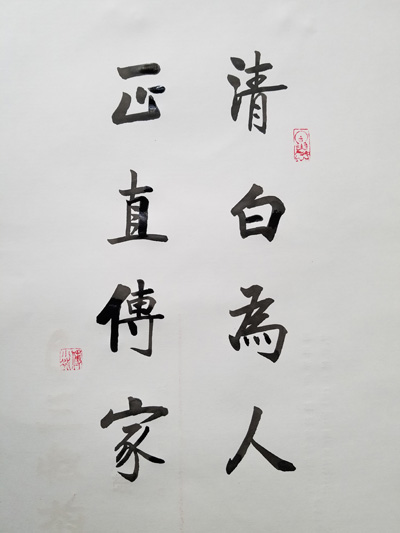 清白為人
正直傳家